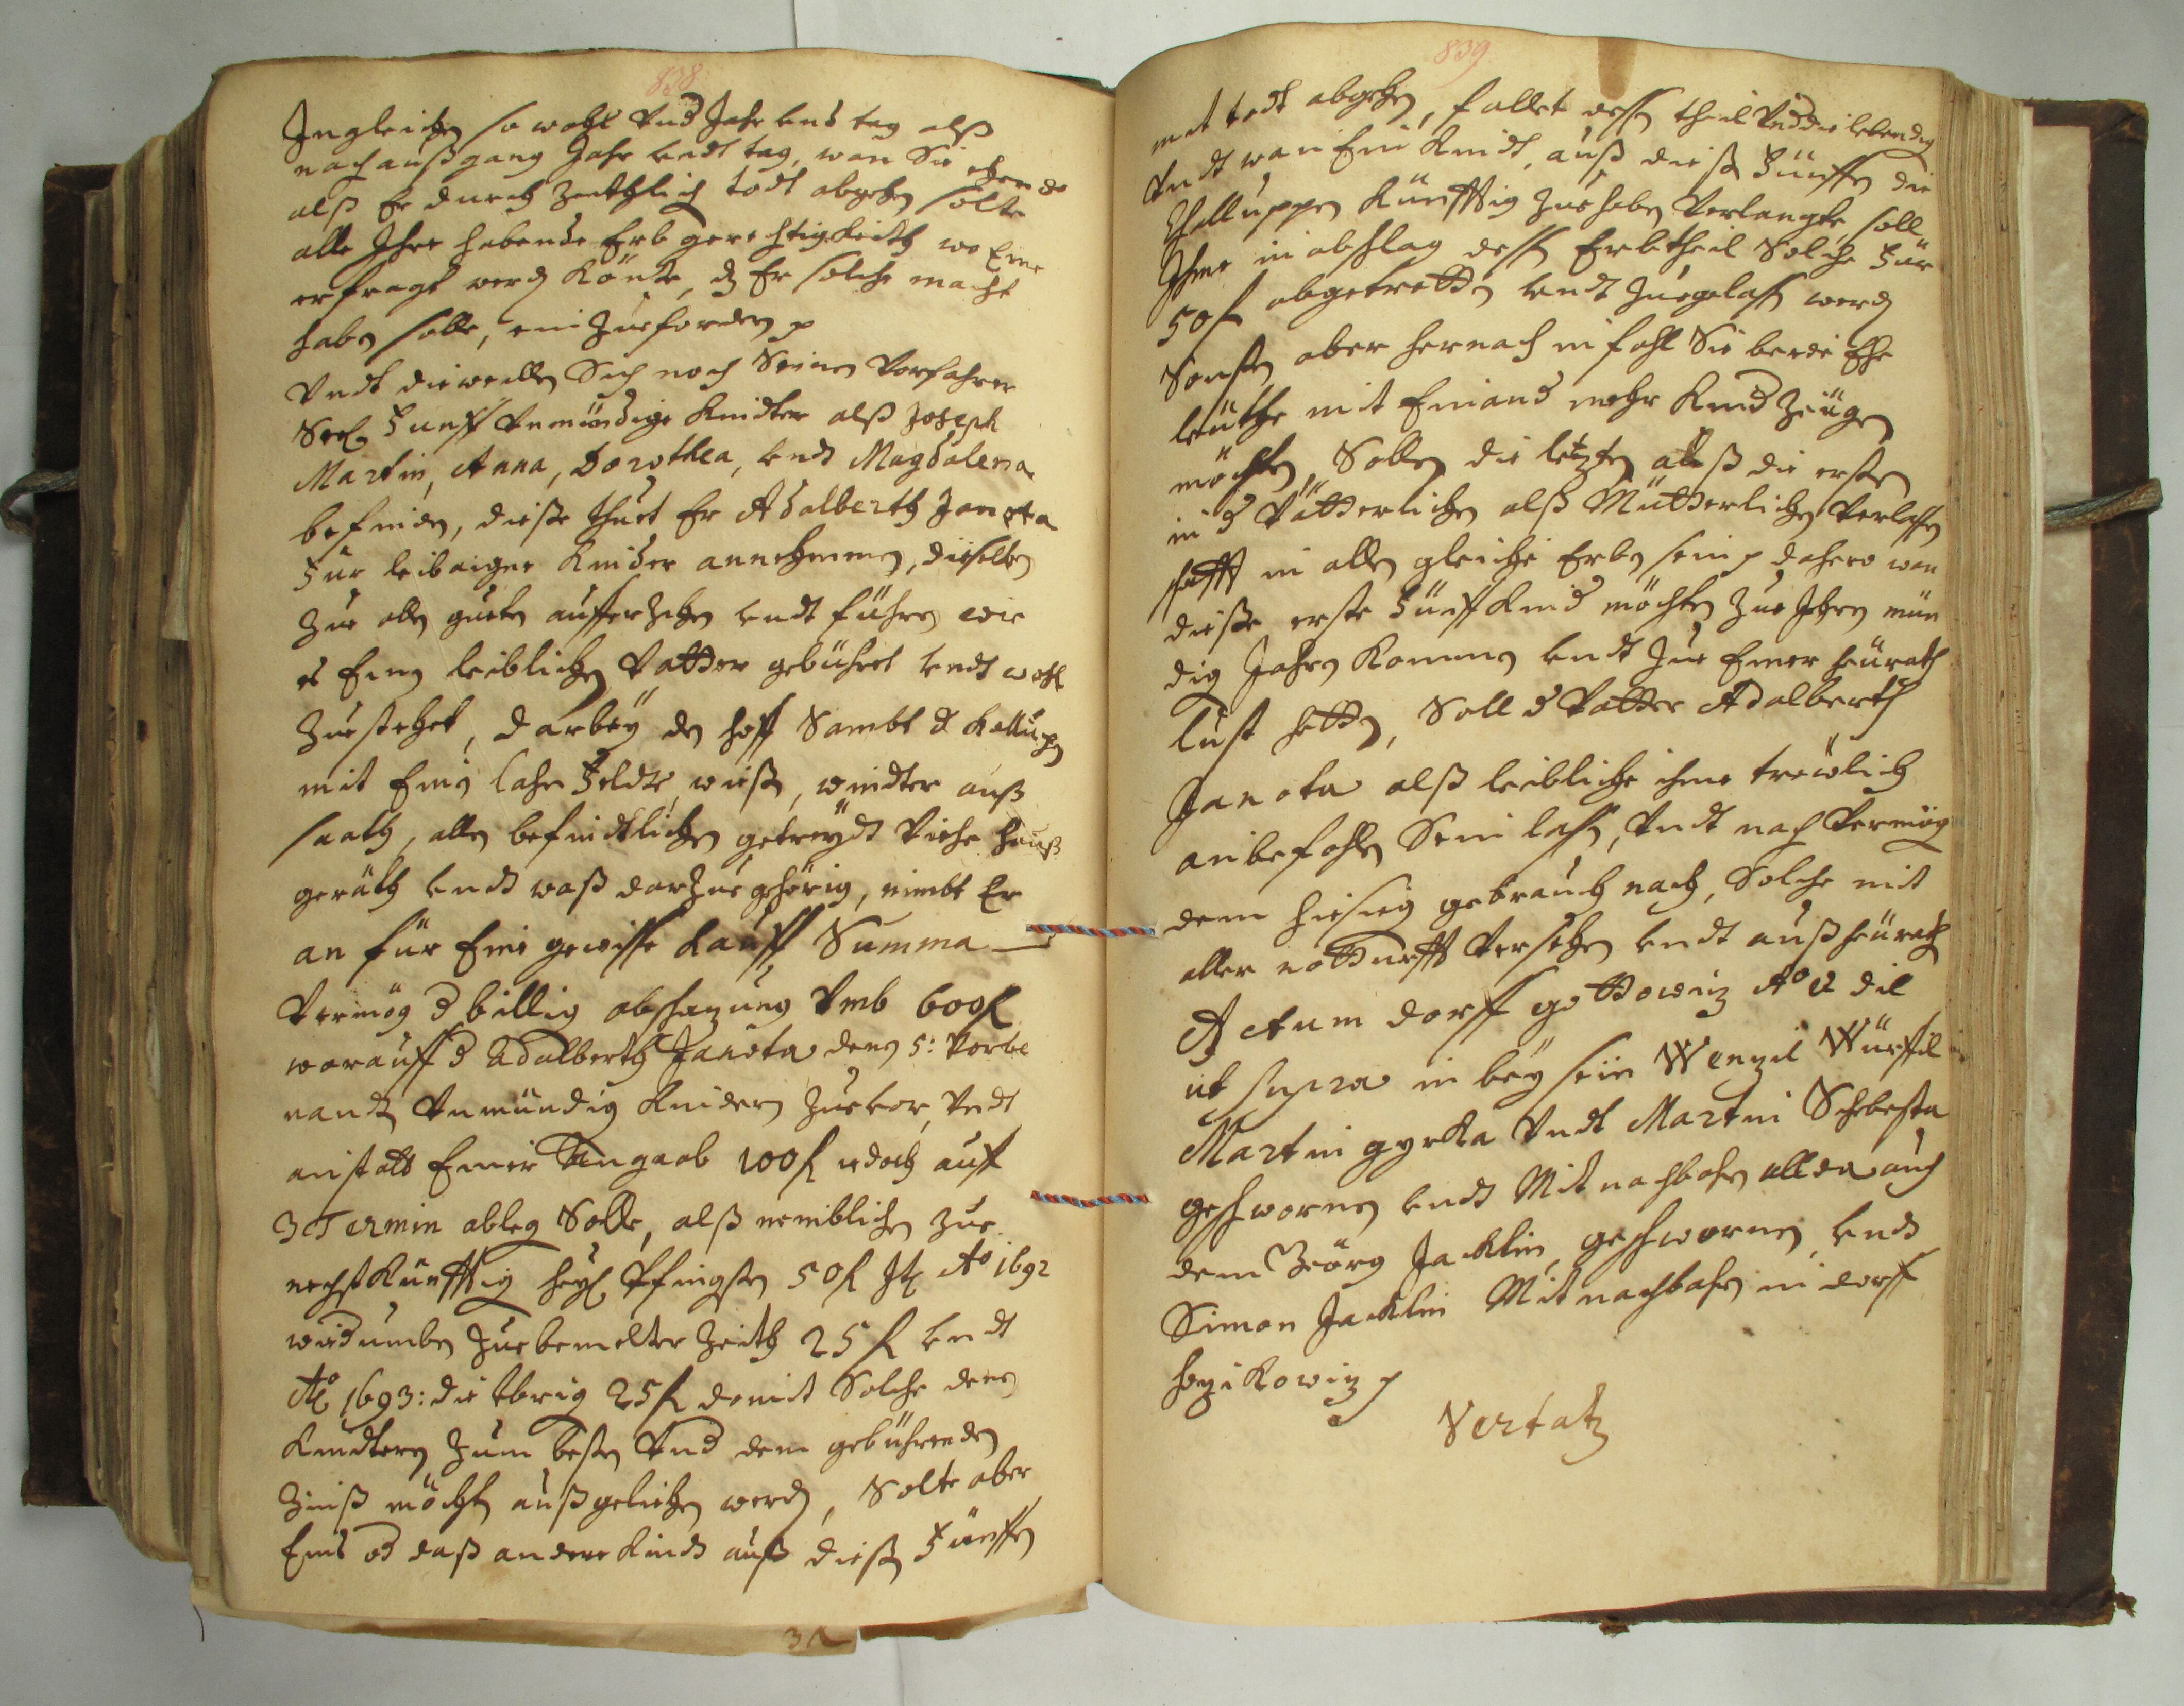 838
Ingleichen so wohl vnd Jahr vnd tag alß
nach außgang Jahr vndt tag, wan Sie eher do
alß Er durch zeithlich todt abgehen solte
alle Ihre habende Erb gerechtigkeith wo Eine
erfragt werd Könte, dz Er solche macht
haben solle, ein Zue fordern p
Vndt dieweillen Sich noch Seines Vorfahrer
Seel Fünff Vnmündige Kindter alß Joseph
Martin, Anna, Dorothea, vndt Magdalena
befinden, diesse thuet Er Adalberth Janota
Für leibaigne Kinder annehmmen, dieselben
Zue allen gueten aufferzihen vndt führen wie
es Einen leiblichen Vatter gebühret vndt wohl
Zuestehet, darbeÿ den hoff Sambt d Kallupen
mit Einen lahn Feldt, wießen, windter auß
saath, allen befindtlichen getreÿdt Viehe hauß
geräth vndt waß darzue gehörig, nimbt Er
an für Eine gewisse Kauff Summa
Vermög d billig abschazung Vmb 600 f
worauff d Adalberth Janota denen 5: Vorbe
nandt Vnmündig Kindern Zuevor, Vndt
anstatt Einer Angaab 100 f iedoch auff
3 Termin ableg Solle, alß nemblichen zue
nechst Künfftig heyl Pfingsten 50 f It Aō 1692
widumben Zue bemelter Zeith 25 f vndt
Aō 1693: die vbrig 25 f damit Solche denen
Kindtern zum besten Vnd dem gebührenden
Zinß möchten außgeliehen werd, Solte aber
Eins od daß andere Kindt auß diesen Fünffen
839
mit todt abgehen, fallet dessen theil Vnd die lebendig
Vndt wan Ein Kindt, auß diessen Fünffen die
Challuppen Künfftig zue haben Verlangte soll
Ihme in abschlag dessen Erbtheil Solche Für
50 f abgetretten vndt Zuegelassen werd
Sonsten aber hernach in fahl Sie beede Ehe
leüthe mit Einand mehr Kind Zeügen
möchten, Sollen die letzten alß die ersten
in d Vätterlichen alß Mütterlichen Verlassen
schafft in allen gleiche Erben sein p dahero wan
diesse erste Fünff Kind möchten zue Ihren mün
dig Jahren Kommen vndt Zue Einer heürath
Lust hetten, Soll d Vatter Adalberth
Janota alß leibliche ihme treülich
anbefohlen Sein lassen, Vndt nach Vermög
dem hiesieg gebrauch nach, Solche mit
aller notturfft Versehen vndt außheürath
Actum dorff gottowiz Aō & die
ut supra in beÿ sein Wenzel Würffel
Martin gyrka Vndt Martin Schebesta
geschwornen vndt Mitnachbahrn allda auch
dem Geörg Jacklin, geschwornen, vndt
Simon Jacklin Mitnachbahrn in dorff
hozikowiz p
Vertatz